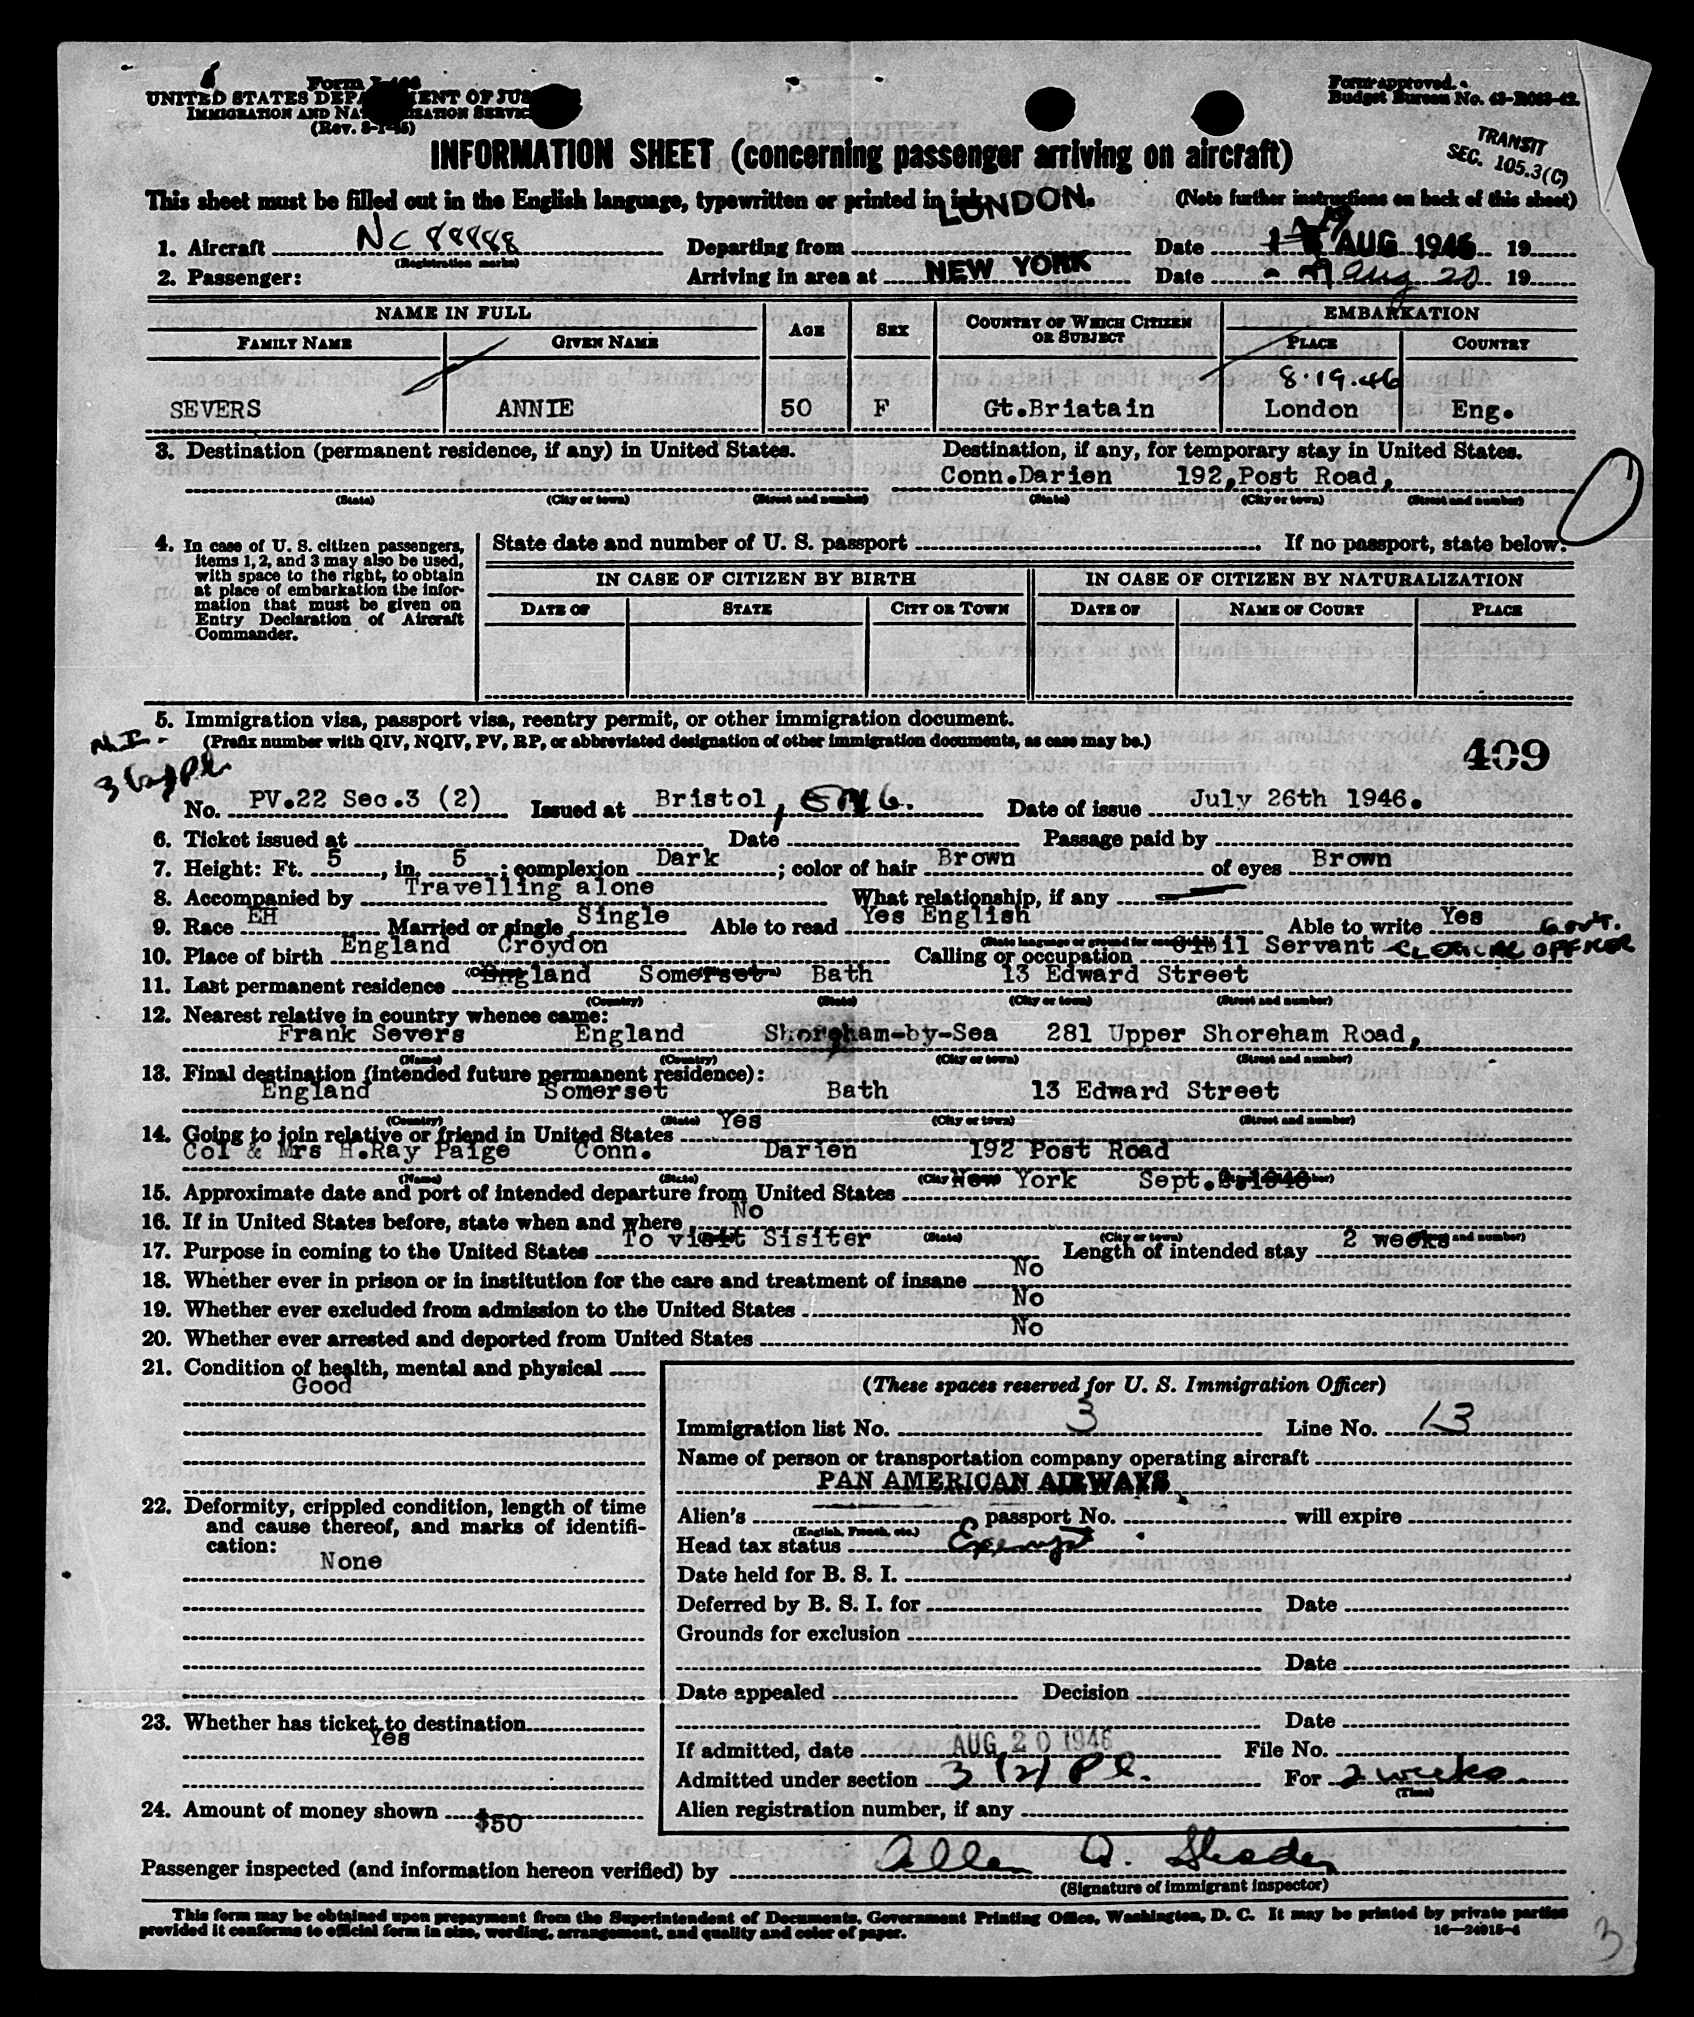 UNITED STATES DEPARTMENT OF JUSTICE
IMMIGRATION AND NATURALIZATION SERVICE
(Rev. 8-1-45)
Form approved.
Budget Bureau No. 43-R083-42.
TRANSIT
SEC. 105.3(C)
INFORMATION SHEET (concerning passenger arriving on aircraft)
This sheet must be filled out in the English language, typewritten or printed in ink. (Note further instructions on back of this sheet)
LONDON.
1. Aircraft NC 88888 Departing from Date 19 AUG 1946 19
(Registration marks)
2. Passenger: Arriving in area at NEW YORK Date Aug 20 19
NAME IN FULL AGE SEX COUNTRY OF WHICH CITIZEN OR SUBJECT EMBARKATION
FAMILY NAME GIVEN NAME PLACE COUNTRY
8.19.46
SEVERS ANNIE 50 F Gt.Briatain London Eng.
3. Destination (permanent residence, if any) in United States. Destination, if any, for temporary stay in United States.
Conn.Darien 192,Post Road,
(State) (City or town) (Street and number) (State) (City or town) (Street and number)
4. In case of U. S. citizen passengers, items 1, 2, and 3 may also be used, with space to the right, to obtain at place of embarkation the information that must be given on Entry Declaration of Aircraft Commander.
State date and number of U. S. passport If no passport, state below:
IN CASE OF CITIZEN BY BIRTH IN CASE OF CITIZEN BY NATURALIZATION
DATE OF STATE CITY OR TOWN DATE OF NAME OF COURT PLACE
5. Immigration visa, passport visa, reentry permit, or other immigration document.
(Prefix number with QIV, NQIV, PV, RP, or abbreviated designation of other immigration documents, as case may be.)
409
No. PV.22 Sec.3 (2) Issued at Bristol, ENG. Date of issue July 26th 1946.
6. Ticket issued at Date Passage paid by
7. Height: Ft. 5, in. 5; complexion Dark; color of hair Brown of eyes Brown
8. Accompanied by Travelling alone What relationship, if any
9. Race EH Married or single Single Able to read Yes English Able to write Yes
GOVT.
10. Place of birth England Croydon Calling or occupation Civil Servant CLERICAL OFFICER
11. Last permanent residence England Somerset Bath 13 Edward Street
(Country) (State) (City or town) (Street and number)
12. Nearest relative in country whence came:
Frank Severs England Shoreham-by-Sea 281 Upper Shoreham Road,
(Name) (Country) (City or town) (Street and number)
13. Final destination (intended future permanent residence):
England Somerset Bath 13 Edward Street
(Country) (State) (City or town) (Street and number)
14. Going to join relative or friend in United States Yes
Col & Mrs H.Ray Paige Conn. Darien 192 Post Road
(Name) (State)
15. Approximate date and port of intended departure from United States New York Sept. 1946
16. If in United States before, state when and where No
(State) (City or town) (Street and number)
17. Purpose in coming to the United States To visit Sisiter Length of intended stay 2 weeks
18. Whether ever in prison or in institution for the care and treatment of insane No
19. Whether ever excluded from admission to the United States No
20. Whether ever arrested and deported from United States No
21. Condition of health, mental and physical
Good
22. Deformity, crippled condition, length of time and cause thereof, and marks of identification:
None
23. Whether has ticket to destination
Yes
24. Amount of money shown $50
(These spaces reserved for U. S. Immigration Officer)
Immigration list No. 3 Line No. 13
Name of person or transportation company operating aircraft
PAN AMERICAN AIRWAYS
Alien's passport No. will expire
(English, French, etc.)
Head tax status Exempt
Date held for B. S. I.
Deferred by B. S. I. for Date
Grounds for exclusion
Date
Date appealed Decision
Date
If admitted, date AUG 20 1946 File No.
Admitted under section 3 (2) Pl. For 2 weeks
(Time)
Alien registration number, if any
Passenger inspected (and information hereon verified) by
(Signature of immigrant inspector)
This form may be obtained upon prepayment from the Superintendent of Documents, Government Printing Office, Washington, D. C. It may be printed by private parties
provided it conforms to official form in size, wording, arrangement, and quality and color of paper. 16—24915-4
3